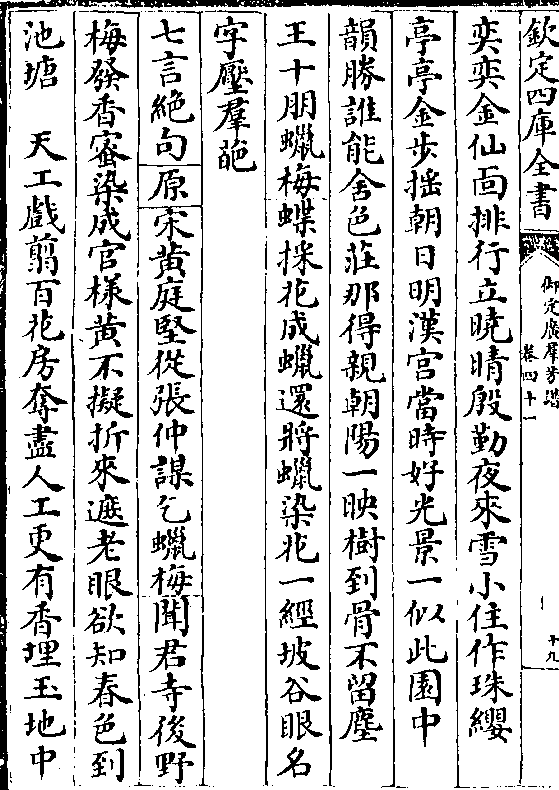 欽定四庫全書
御定廣羣芳譜
卷四十一
十九
奕奕金仙面排行立曉晴殷勤夜來雪小住作珠纓
亭亭金步摇朝日明漢宫當時好光景一似此園中
韻勝誰能舍色莊那得親朝陽一映樹到骨不留塵
王十朋蠟梅蝶採花成蠟還將蠟染花一經坡谷眼名
字壓羣葩
七言絶句原宋黄庭堅從張仲謀乞蠟梅聞君寺後野
梅發香蜜染成官樣黄不擬折來遮老眼欲知春色到
池塘　天工戲翦百花房奪盡人工更有香埋玉地中